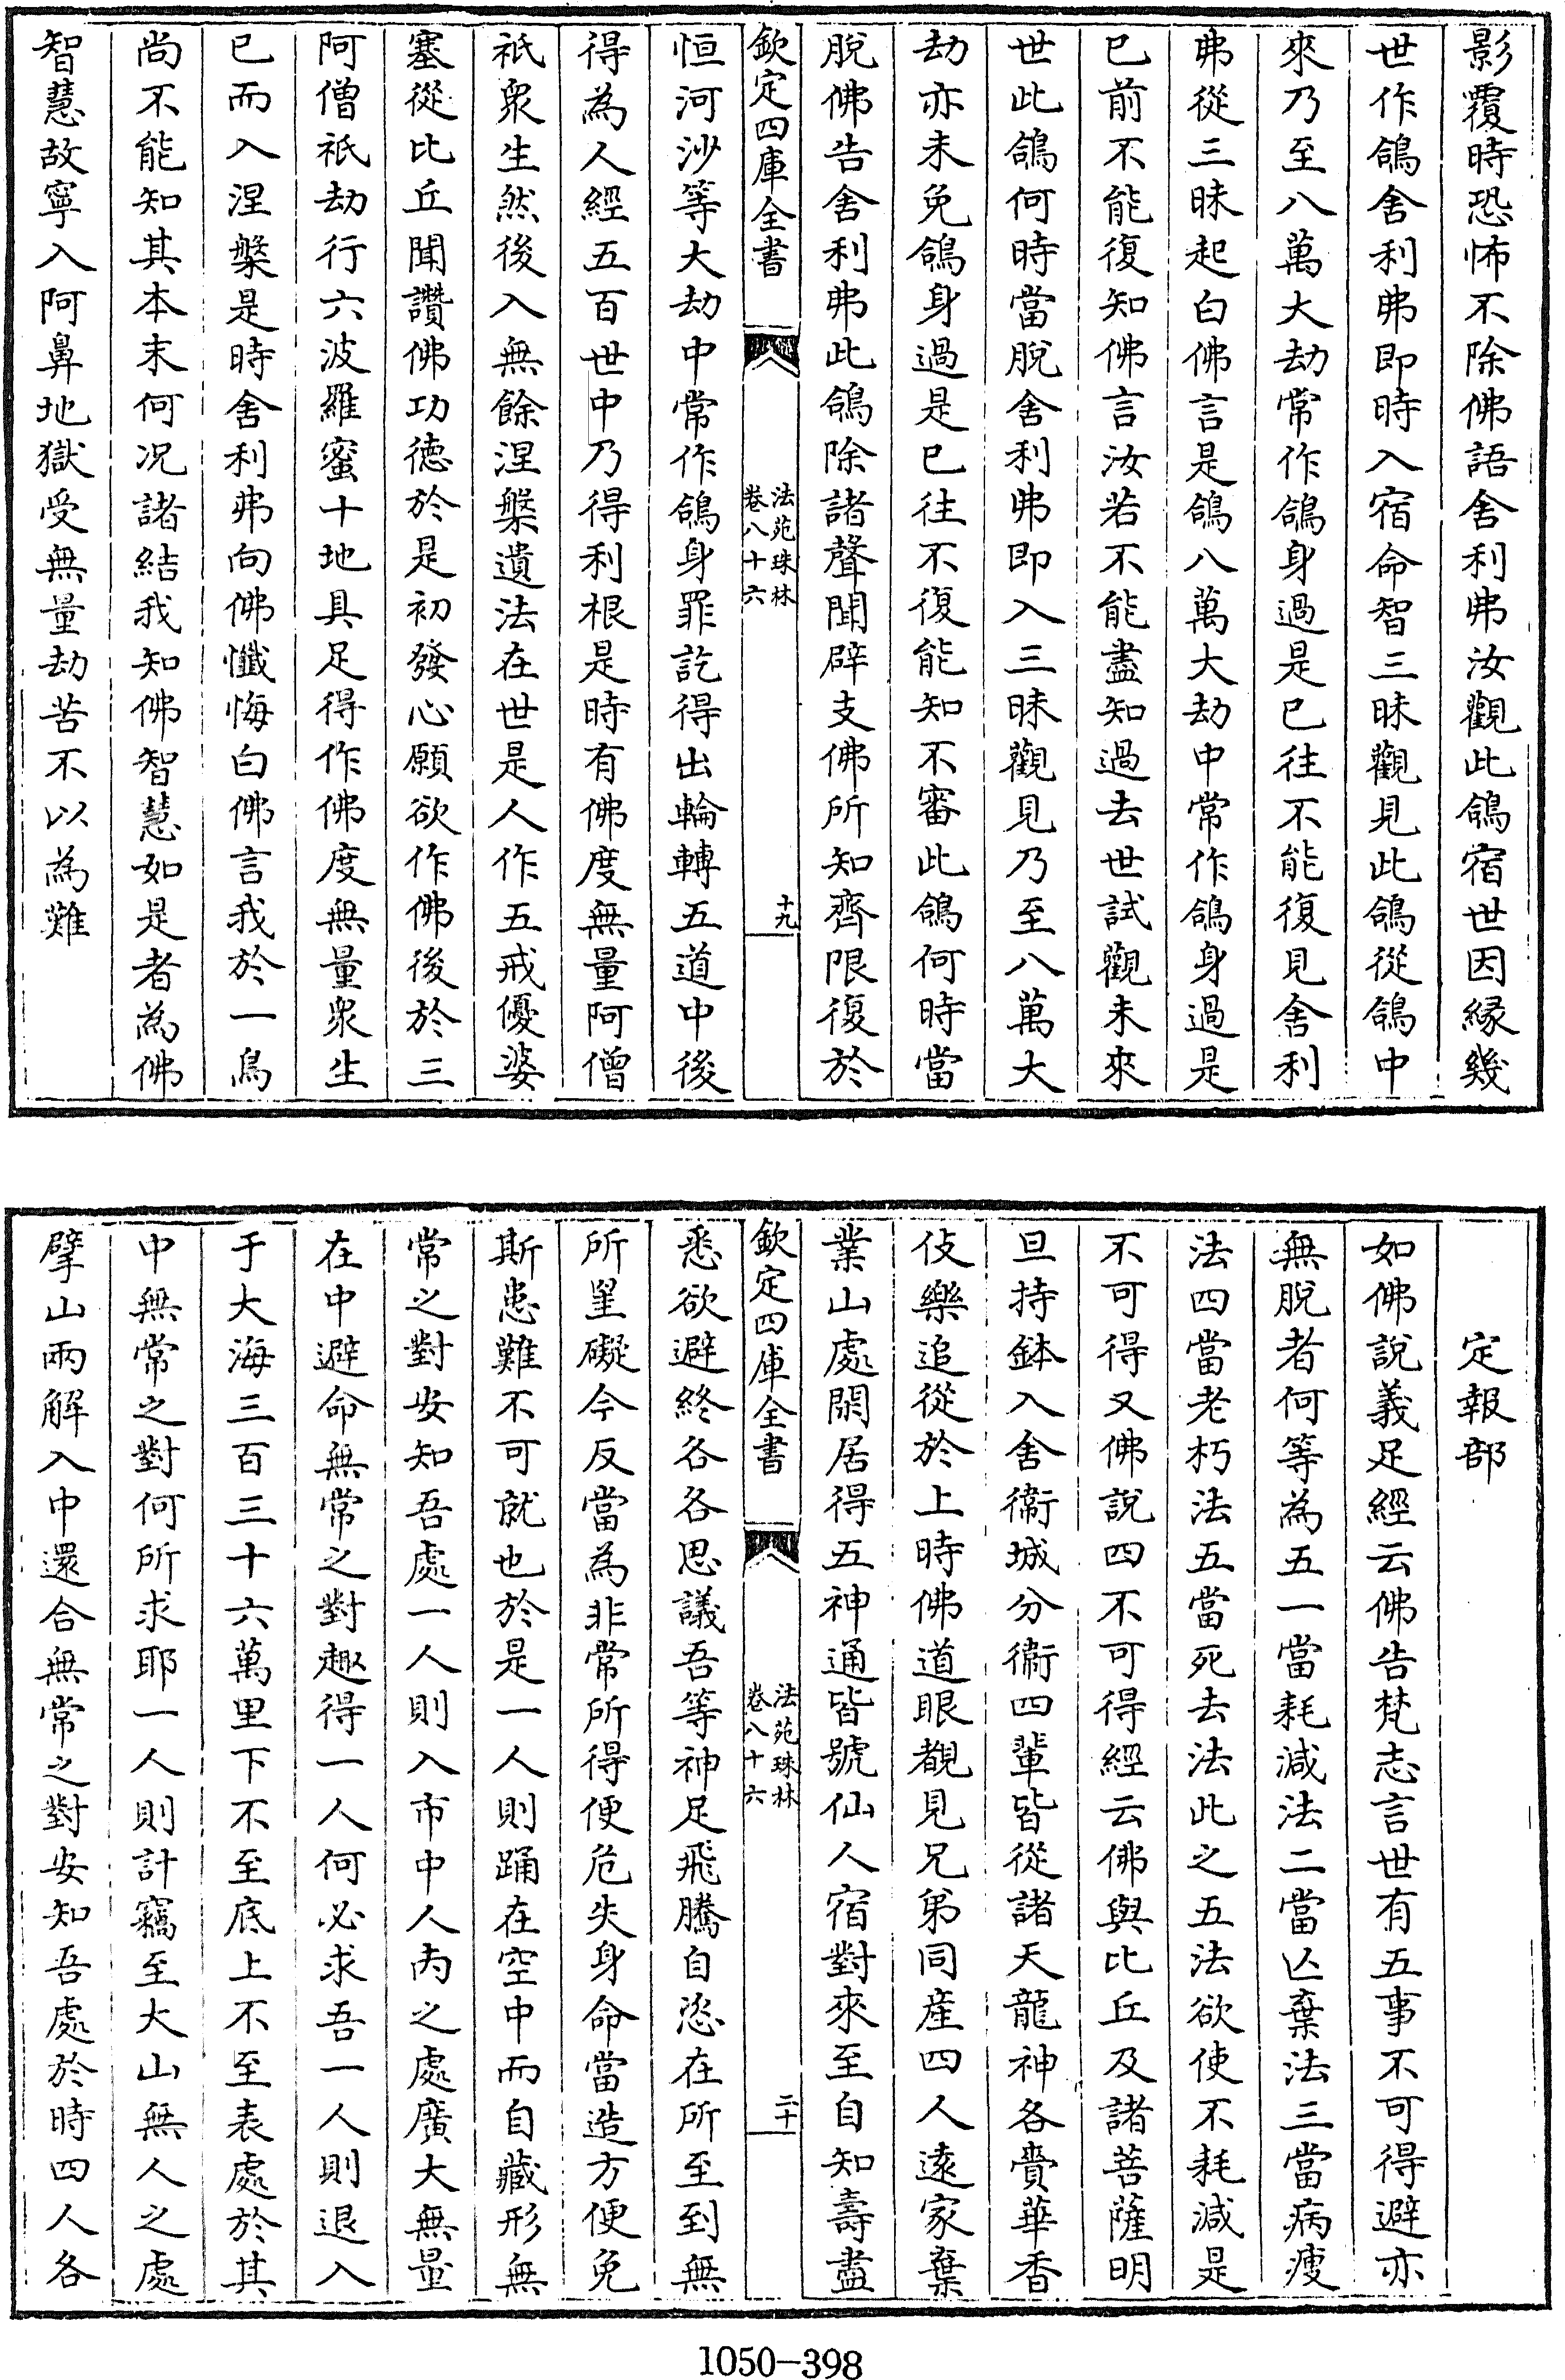 影覆時恐怖不除佛語舍利弗汝觀此鴿宿世因緣幾
世作鴿舍利弗即時入宿命智三昧觀見此鴿從鴿中
來乃至八萬大劫常作鴿身過是已往不能復見舍利
弗從三昧起白佛言是鴿八萬大劫中常作鴿身過是
已前不能復知佛言汝若不能盡知過去世試觀未來
世此鴿何時當脫舍利弗即入三昧觀見乃至八萬大
劫亦未免鴿身過是已往不復能知不審此鴿何時當
脫佛告舍利弗此鴿除諸聲聞辟支佛所知齊限復於
欽定四庫全書
法苑珠林
卷八十六
十九
恒河沙等大劫中常作鴿身罪訖得出輪轉五道中後
得為人經五百世中乃得利根是時有佛度無量阿僧
祇眾生然後入無餘涅槃遺法在世是人作五戒優婆
塞從比丘聞讚佛功德於是初發心願欲作佛後於三
阿僧祇劫行六波羅蜜十地具足得作佛度無量眾生
已而入涅槃是時舍利弗向佛懺悔白佛言我於一鳥
尚不能知其本末何況諸結我知佛智慧如是者為佛
智慧故寧入阿鼻地獄受無量劫苦不以為難
定報部
如佛說義足經云佛告梵志言世有五事不可得避亦
無脫者何等為五一當耗減法二當亾棄法三當病瘦
法四當老朽法五當死去法此之五法欲使不耗減是
不可得又佛說四不可得經云佛與比丘及諸菩薩明
旦持鉢入舍衞城分衞四輩皆從諸天龍神各賫華香
伎樂追從於上時佛道眼覩見兄弟同產四人遠家棄
業山處閑居得五神通皆號仙人宿對來至自知壽盡
欽定四庫全書
法苑珠林
卷八十六
二十
悉欲避終各各思議吾等神足飛騰自恣在所至到無
所罣礙今反當為非常所得便危失身命當造方便免
斯患難不可就也於是一人則踊在空中而自藏形無
常之對安知吾處一人則入市中人內之處廣大無量
在中避命無常之對趣得一人何必求吾一人則退入
于大海三百三十六萬里下不至底上不至表處於其
中無常之對何所求耶一人則計竊至大山無人之處
擘山兩解入中還合無常之對安知吾處於時四人各
1050-398